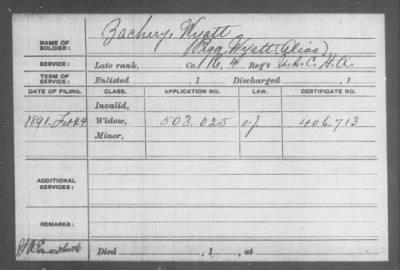 NAME OF SOLDIER: Zachery, Wyatt
Wyatt (alias)
SERVICE: Late rank, Co. 4 Reg't U.S.C. H.A.
TERM OF SERVICE: Enlisted , 1 Discharged , 1
DATE OF FILING. CLASS. APPLICATION NO. LAW. CERTIFICATE NO.
Invalid,
1891. 24 Widow, 503.025 406.713
Minor,
ADDITIONAL SERVICES:
REMARKS:
Died , 1 , at